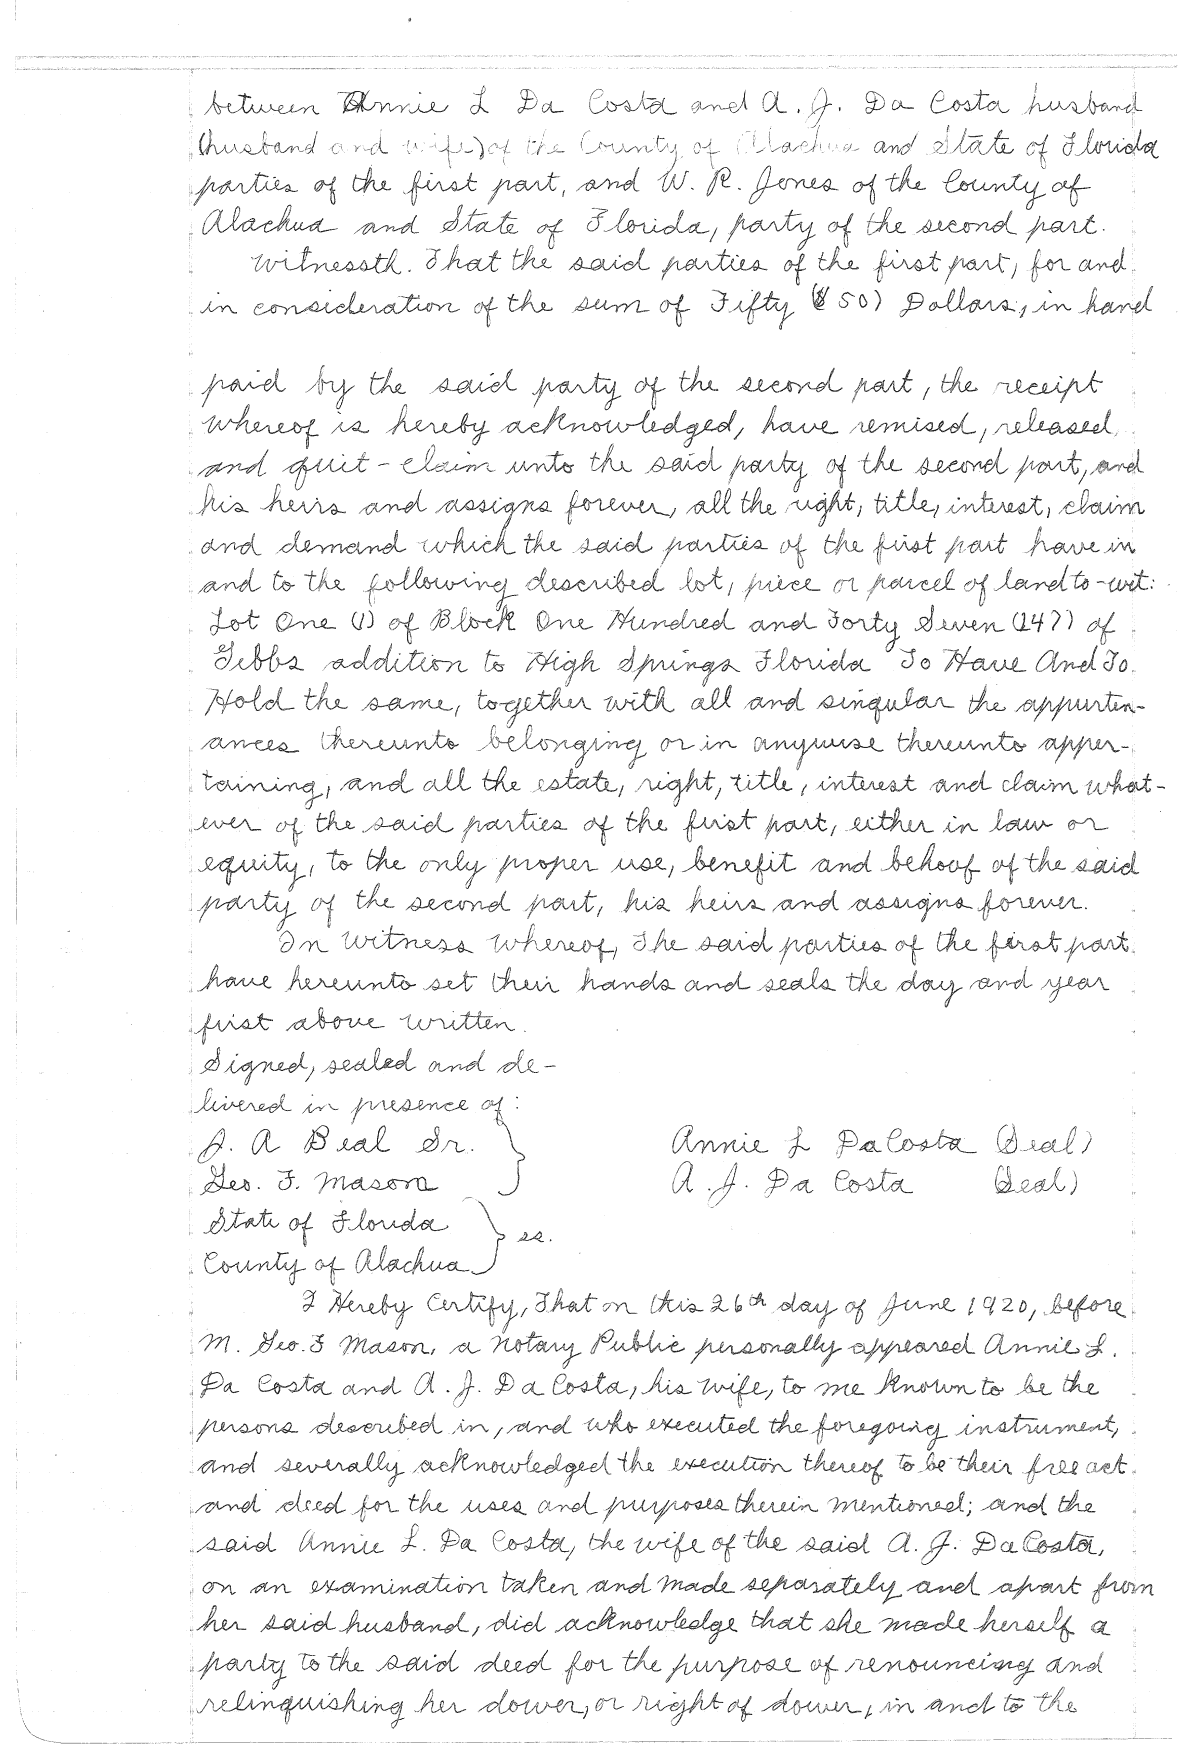 between Annie L Da Costa and A. J. Da Costa husband
(husband and wife) of the County of Alachua and State of Florida
parties of the first part, and W. R. Jones of the County of
Alachua and State of Florida, party of the second part.
Witnessth. That the said parties of the first part, for and
in consideration of the sum of Fifty ($50) Dollars, in hand
paid by the said party of the second part, the receipt
whereof is hereby acknowledged, have remised, released,
and quit-claim unto the said party of the second part, and
his heirs and assigns forever, all the right, title, interest, claim
and demand which the said parties of the first part have in
and to the following described lot, piece or parcel of land to-wit:
Lot One (1) of Block One Hundred and Forty Seven (147) of
Gibbs addition to High Springs Florida To Have And To
Hold the same, together with all and singular the appurten-
ances thereunto belonging or in anywise thereunto apper-
taining, and all the estate, right, title, interest and claim what-
ever of the said parties of the first part, either in law or
equity, to the only proper use, benefit and behoof of the said
party of the second part, his heirs and assigns forever.
In Witness Whereof, The said parties of the first part
have hereunto set their hands and seals the day and year
first above written.
Signed, sealed and de-
livered in presence of:
J. A Beal Sr. Annie L DaCosta (Seal)
Geo. F. Mason A. J. Da Costa (Seal)
State of Florida
ss.
County of Alachua
I Hereby Certify, That on this 26th day of June 1920, before
M. Geo. F Mason, a Notary Public personally appeared Annie L.
Da Costa and A. J. Da Costa, his wife, to me known to be the
persons described in, and who executed the foregoing instrument,
and severally acknowledged the execution thereof to be their free act
and deed for the uses and purposes therein mentioned; and the
said Annie L. Da Costa, the wife of the said A. J. DaCosta,
on an examination taken and made separately and apart from
her said husband, did acknowledge that she made herself a
party to the said deed for the purpose of renouncing and
relinquishing her dower, or right of dower, in and to the